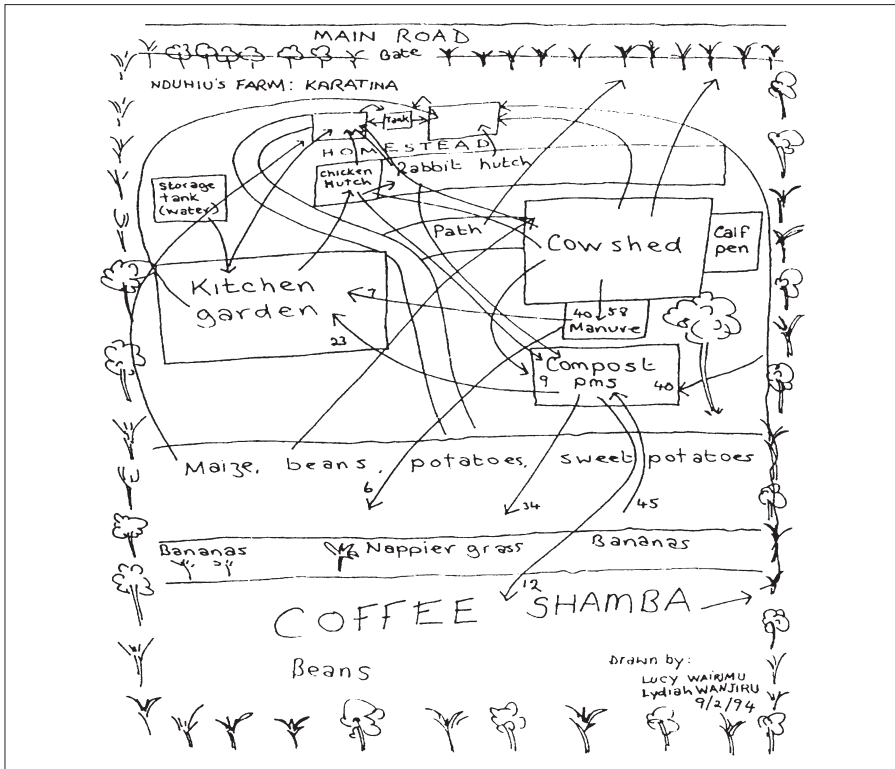 MAIN ROAD
Gate
NDUHIU'S FARM: KARATINA
Tank
HOMESTEAD
Chicken
Hutch
Rabbit hutch
Storage
tank
(water)
Path
Cowshed
Calf
pen
Kitchen
garden
7
23
40 58
Manure
Compost
pms
9
40
Maize, beans, potatoes, sweet potatoes
6
34
45
Bananas
Nappier grass
Bananas
12
COFFEE SHAMBA
Beans
Drawn by:
LUCY WAIRIMU
Lydiah WANJIRU
9/2/94